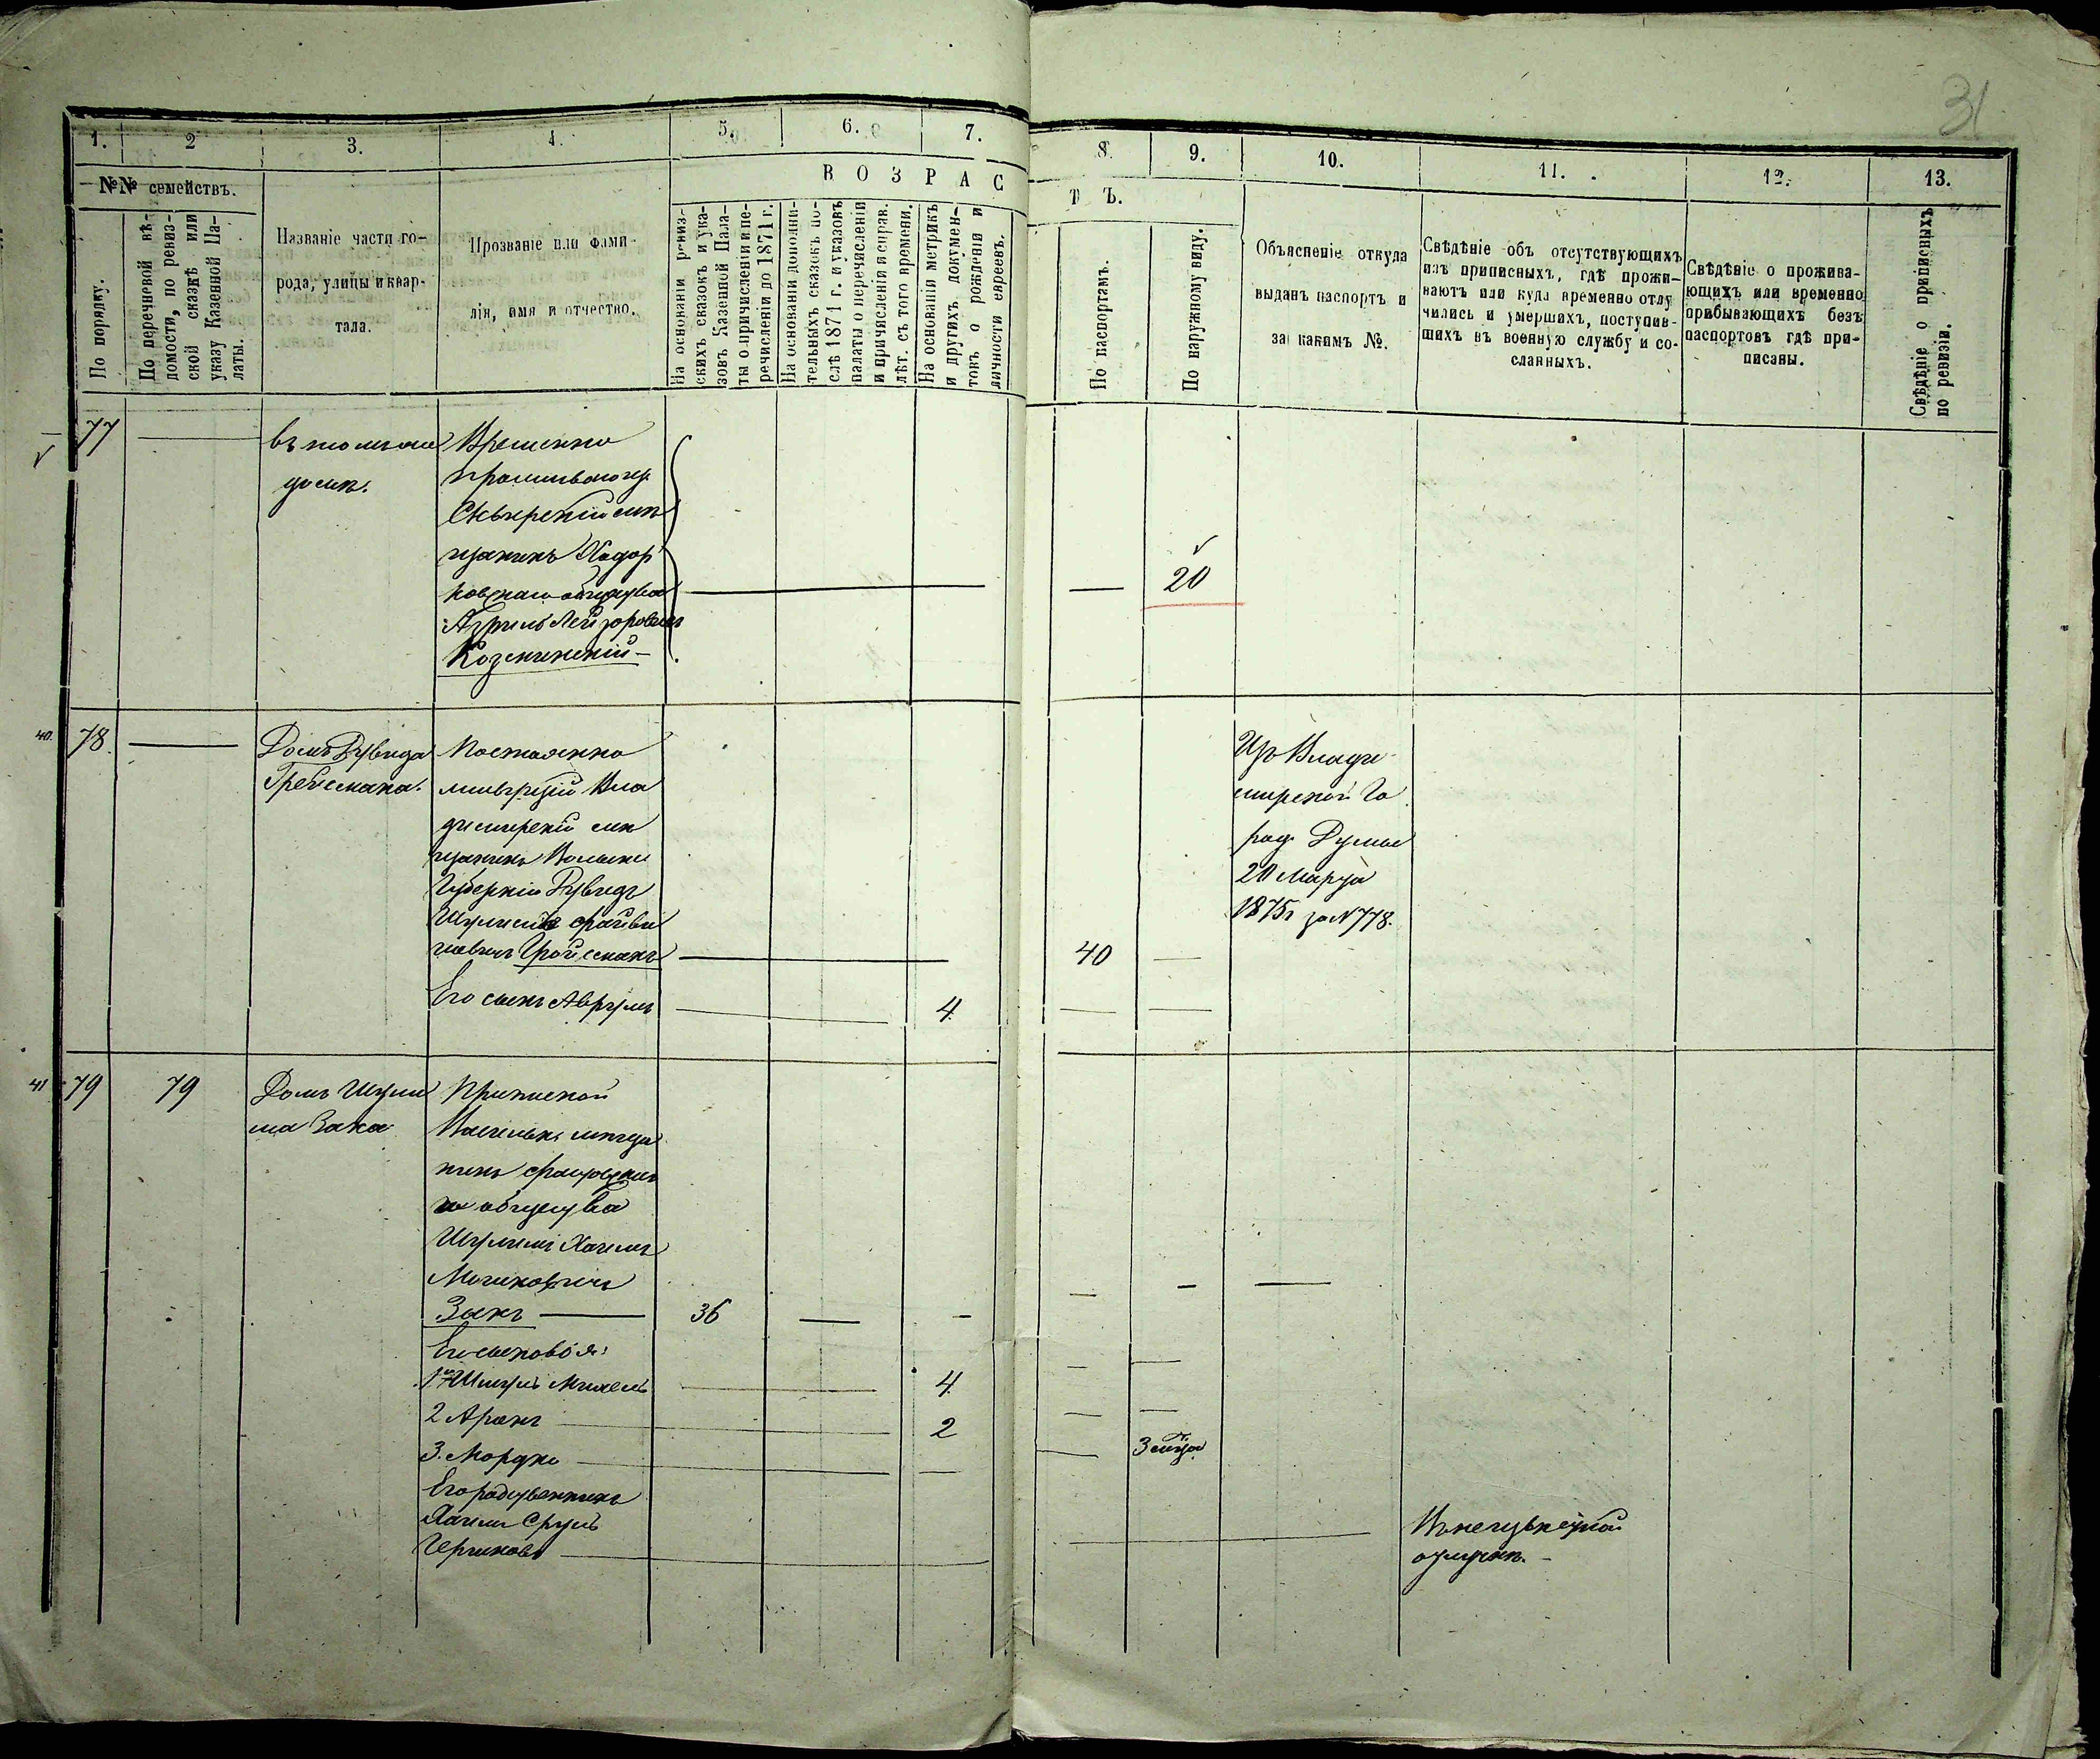 31
1. 2 3. 4. 5. 6. 7. 8. 9. 10. 11. 12. 13.
№№ семействъ.
ВОЗРАСТЪ.
По порядку.
По перечневой вѣ-
домости, по ревиз-
ской сказкѣ или
указу Казенной Па-
латы.
Названіе части го-
рода, улицы и квар-
тала.
Прозваніе или фами-
лія, имя и отчество.
На основаніи ревиз-
скихъ сказокъ и ука-
зовъ Казенной Пала-
ты о причисленіи и пе-
речисленіи до 1871 г.
На основаніи дополни-
тельныхъ сказокъ по-
слѣ 1871 г. и указовъ
палаты о перечисленіи
и причисленіи и справ.
лѣт. съ того времени.
На основаніи метрикъ
и другихъ докумен-
товъ о рожденіи и
личности евреевъ.
По паспортамъ.
По наружному виду.
Объясненіе откуда
выданъ паспортъ и
за какимъ №.
Свѣдѣніе объ отсутствующихъ
изъ приписныхъ, гдѣ прожи-
ваютъ или куда временно отлу
чились и умершихъ, поступив-
шихъ въ военную службу и со-
сланныхъ.
Свѣдѣніе о прожива-
ющихъ или временно
прибывающихъ безъ
паспортовъ гдѣ при-
писаны.
Свѣдѣніе о приписныхъ
по ревизіи.
77
въ томъ же
домѣ.
Временно
Сквирскій мѣ
щанинъ Ходор
ковскаго общества
Лейзоровичъ
20
40. 78.
Домъ Дувида
Постоянно
живущій Вла
димирскій мѣ
щанинъ Волынс
Губерніи Дувидъ
Файви
шевичъ Гройсманъ
40
Его сынъ Аврумъ
4
Изъ Влади
мирской Го
род. Думы
20 Марта
1875г за №778.
41 79 79
Домъ Шули
ма Зака
Приписной
Васильк. мѣща
нинъ Фастовска
го общества
Шулимъ
Закъ
36
Его сыновья:
1й Шмуль Михель
4
2 Аронъ
2
3. Мордко
3 мѣсца
Его родственникъ
Сруль
Въ неизвѣстной
отлучкѣ.